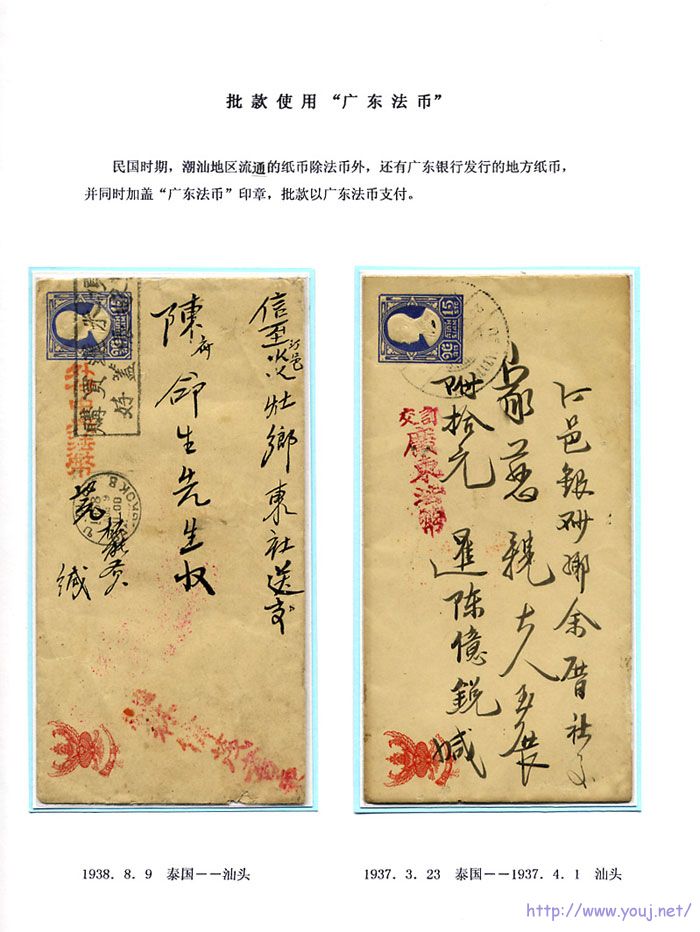 批款使用“广东法币”
民国时期，潮汕地区流通的纸币除法币外，还有广东银行发行的地方纸币，
并同时加盖“广东法币”印章，批款以广东法币支付。
購買
好蓋
信至
壯鄉東社送交
陳府
命生先生收
緘
15
SIAM
江邑銀砂鄉余厝社交
親大人玉展
附拾元
暹陈億銳緘
訂交
廣東法幣
1938. 8. 9 泰国——汕头
1937. 3. 23 泰国——1937. 4. 1 汕头
http://www.youj.net/